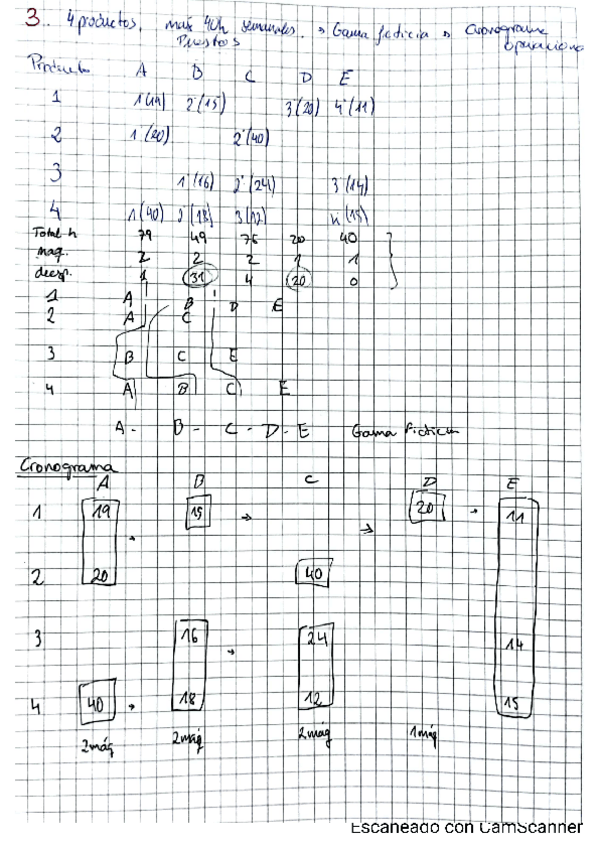 3. 4 productos, máx 40h semanales. → Gama ficticia → Cronograma
Puestos operaciona
Producto A B C D E
1 1·(19) 2·(15) 3·(20) 4·(11)
2 1·(20) 2·(40)
3 1·(16) 2·(24) 3·(14)
4 1·(40) 2·(18) 3·(12) 4·(15)
Total h 79 49 76 20 40
maq. 2 2 2 1 1
desp. 1 31 4 20 0
1 A B D E
2 A C
3 B C E
4 A B C E
A - B - C - D - E Gama Ficticia
Cronograma
A B C D E
1 19 15 → → 20 → 11
2 20 40
3 16 → 24 14
4 40 → 18 12 15
2 máq 2 máq 2 máq 1 máq
Escaneado con CamScanner